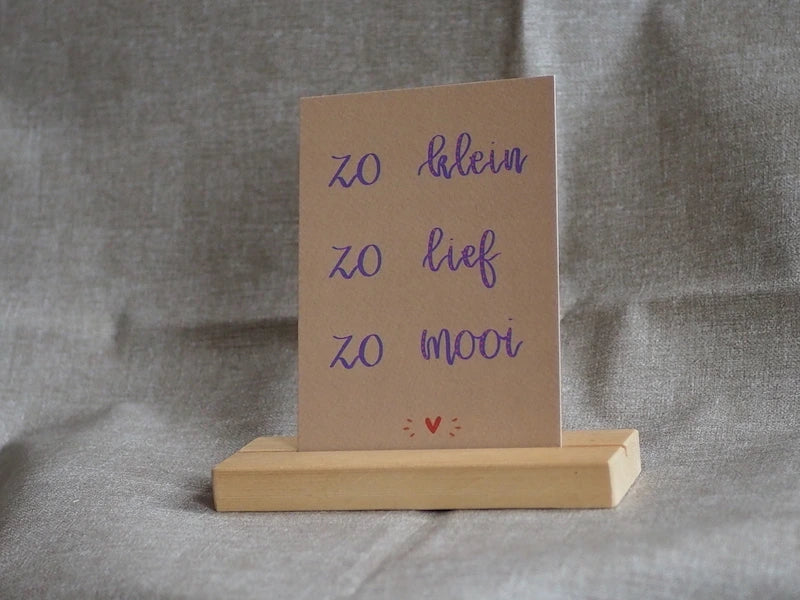 zo klein
zo lief
zo mooi